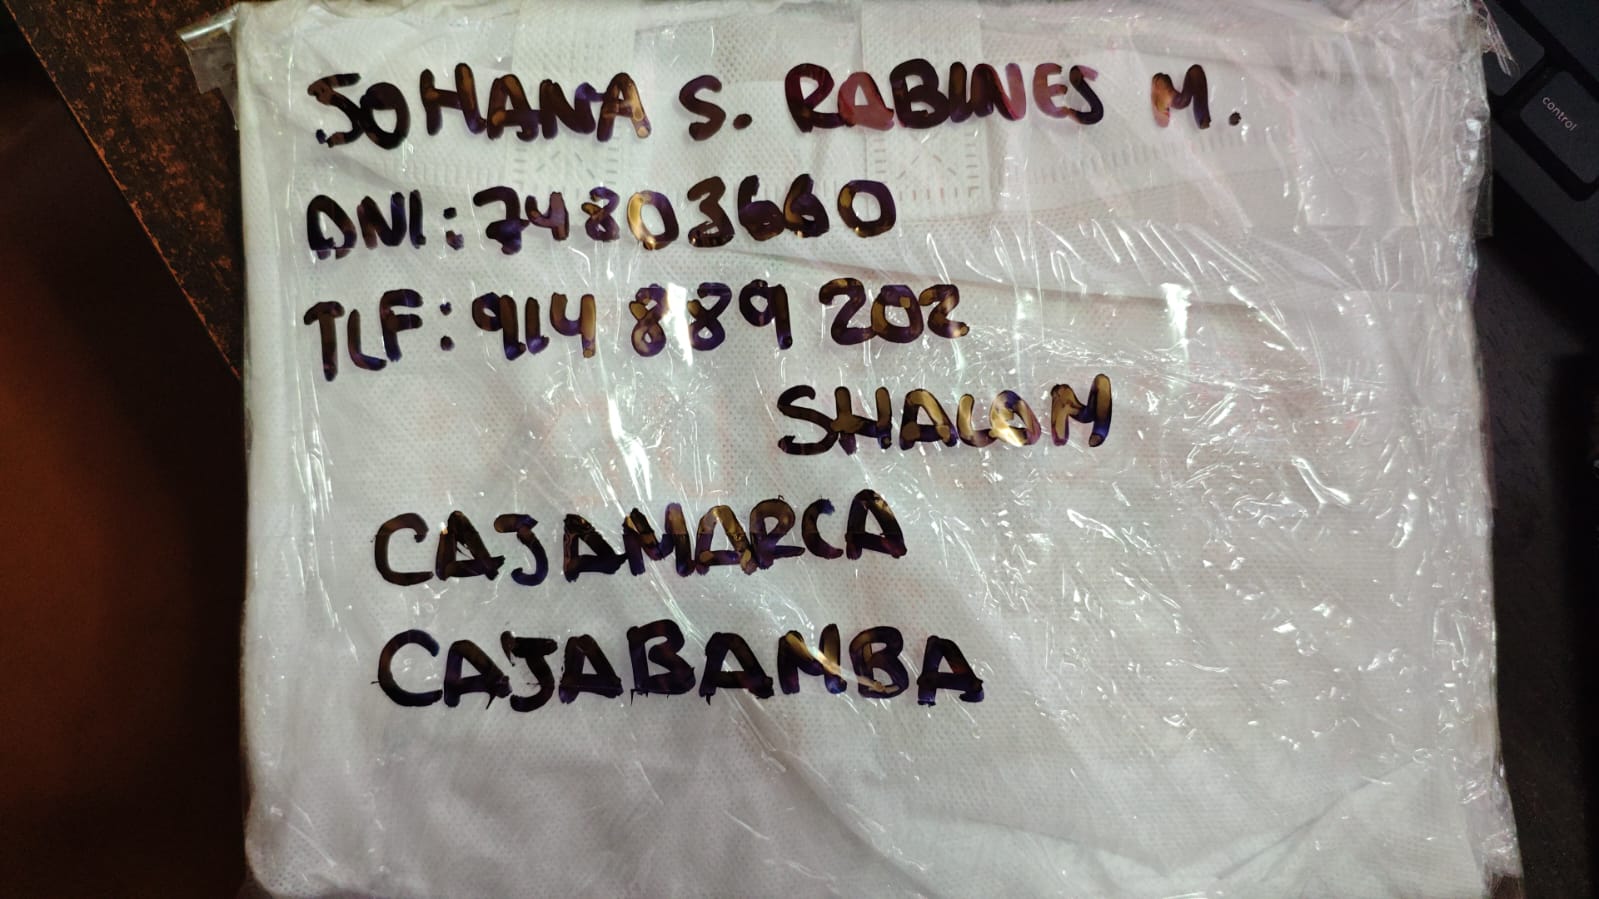 SOHANA S. RABINES M.
DNI: 74803660
TLF: 914 889 202
SHALOM
CAJAMARCA
CAJABAMBA
control